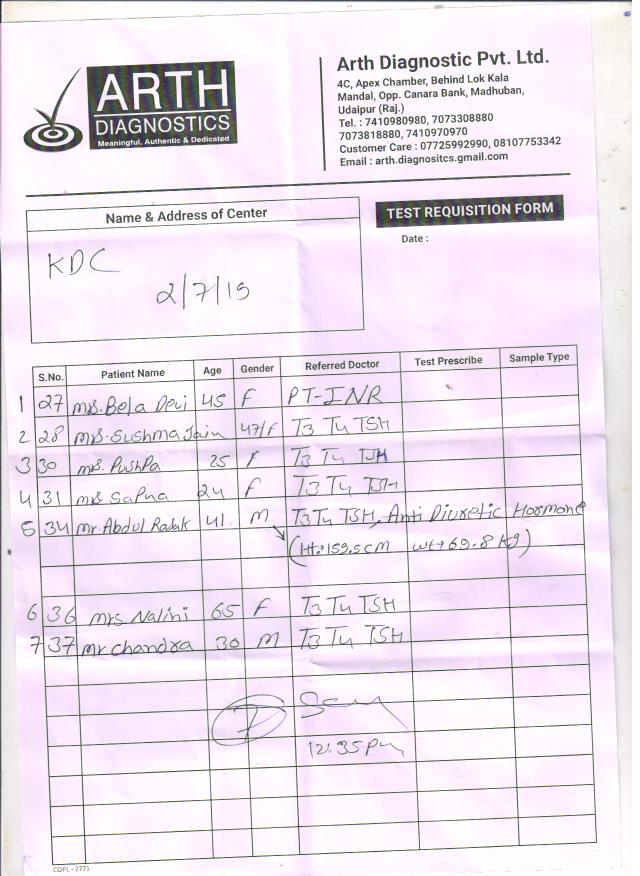 ARTH
DIAGNOSTICS
Meaningful, Authentic & Dedicated
Arth Diagnostic Pvt. Ltd.
4C, Apex Chamber, Behind Lok Kala
Mandal, Opp. Canara Bank, Madhuban,
Udaipur (Raj.)
Tel. : 7410980980, 7073308880
7073818880, 7410970970
Customer Care : 07725992990, 08107753342
Email : arth.diagnositcs.gmail.com
Name & Address of Center
TEST REQUISITION FORM
Date :
KDC
2/7/19
S.No. Patient Name Age Gender Referred Doctor Test Prescribe Sample Type
1 27 Mrs. Bela Devi 45 F PT-INR
2 28 Mrs. Sushma Jain 47/F T3 T4 TSH
3 30 Mrs. Pushpa 25 F T3 T4 TSH
4 31 Mrs Sapna 24 F T3 T4 TSH
5 34 Mr. Abdul Razak 41 M T3 T4 TSH, Anti Diuretic Hormone
(Ht→159.5cm wt→69.8 Kg.)
6 36 Mrs. Nalini 65 F T3 T4 TSH
7 37 Mr Chandra 30 M T3 T4 TSH
12.35 Pm
COPL - 2771